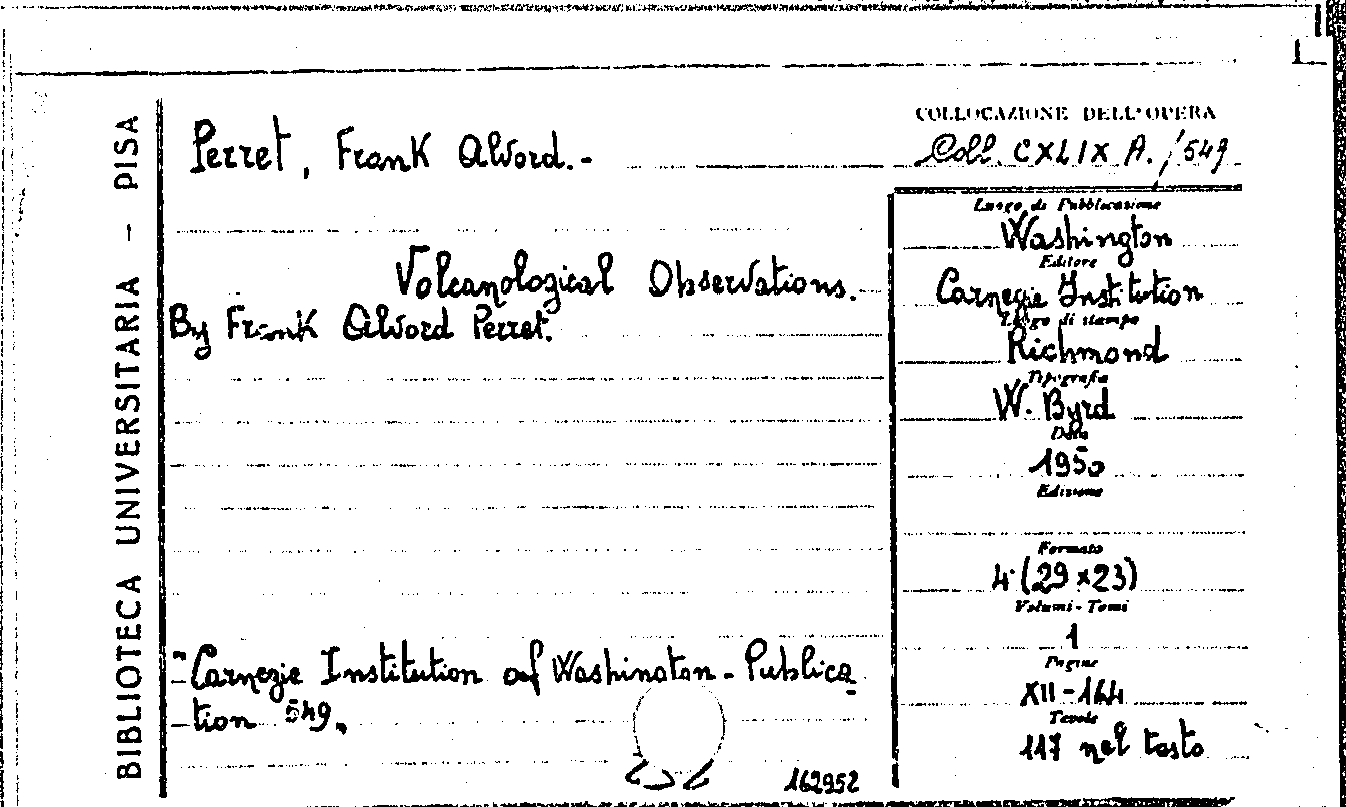 BIBLIOTECA UNIVERSITARIA - PISA
Perret, Frank Alvord.-
Volcanological Observations.
By Frank Alvord Perret.
"Carnegie Institution of Washington - Publica-
tion 549.
162952
COLLOCAZIONE DELL'OPERA
Coll. CXLIX A. / 549
Luogo di Pubblicazione
Washington
Editore
Carnegie Institution
Luogo di stampa
Richmond
Tipografia
W. Byrd
Data
1950
Edizione
Formato
4° (29x23)
Volumi - Tomi
1
Pagine
XII-164
Tavole
117 nel testo